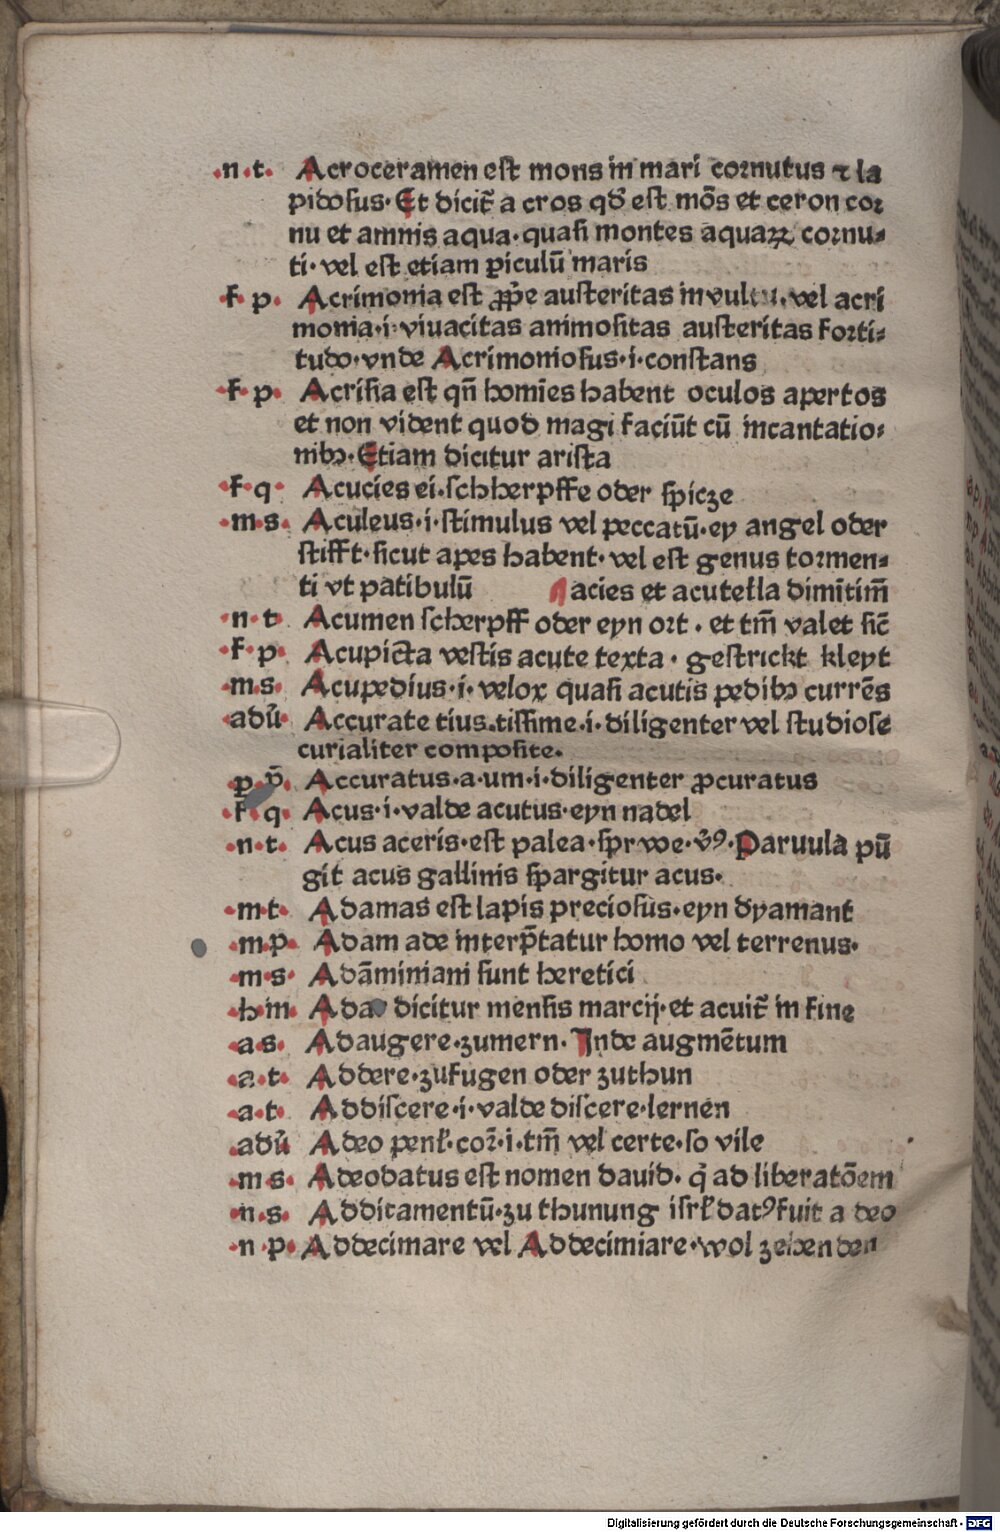 .n.t. Acroceramen est mons in mari cornutus ⁊ la
pidosus. Et dicit̃ a cros qđ est mõs et ceron cor
nu et amnis aqua. quasi montes aquaꝝ cornu⸗
ti. vel est etiam ꝑiculũ maris
.f p. Acrimonia est ꝓp̃e austeritas in vultu. vel acri
monia.i. viuacitas animositas austeritas forti⸗
tudo. vnde Acrimoniosus.i.constans
.f. p. Acrisia est qñ homĩes habent oculos apertos
et non vident quod magi faciũt cũ incantatio⸗
nibꝫ. Etiam dicitur arista
.f.q. Acucies ei.scherpffe oder spicze
.m.s. Aculeus.i.stimulus vel peccatũ.ey angel oder
stifft. sicut apes habent. vel est genus tormen⸗
ti vt patibulũ ¶ acies et acutella dimĩtim̃
.n.t Acumen scherpff oder eyn ort. et tm̃ valet sic̃
.f.p. Acupicta vestis acute texta. gestrickt kleyt
.m.s. Acupedius.i. velox quasi acutis pedibꝫ currẽs
.adũ. Accurate tius.tissime.i.diligenter vel studiose
curialiter composite.
p ṽ. Accuratus.a.um.i.diligenter ꝓcuratus
.f.q. Acus.i.valde acutus.eyn nadel
.n.t. Acus aceris.est palea.sprwe.ṽꝰ. Paruula pũ
git acus gallinis spargitur acus.
.m.t. Adamas est lapis preciosus.eyn dyamant
.m.p. Adam ade interp̃tatur homo vel terrenus.
.m.s. Adãminiani sunt heretici
.h.in. Ada dicitur mensis marcij.et acuit̃ in fine
.a.s. Adaugere.zumern. Inde augmẽtum
.a.t. Addere.zufugen oder zuthun
.a.t. Addiscere.i.valde discere.lernen
.adũ Adeo penł.cor̃.i.tm̃ vel certe.so vile
.m s. Adeodatus est nomen dauid. q̃ ad liberatõem
.n.s. Additamentũ.zu thunung isrł datꝰ fuit a deo
.n.p. Addecimare vel Addecimiare.wol zehenden
Digitalisierung gefördert durch die Deutsche Forschungsgemeinschaft - DFG